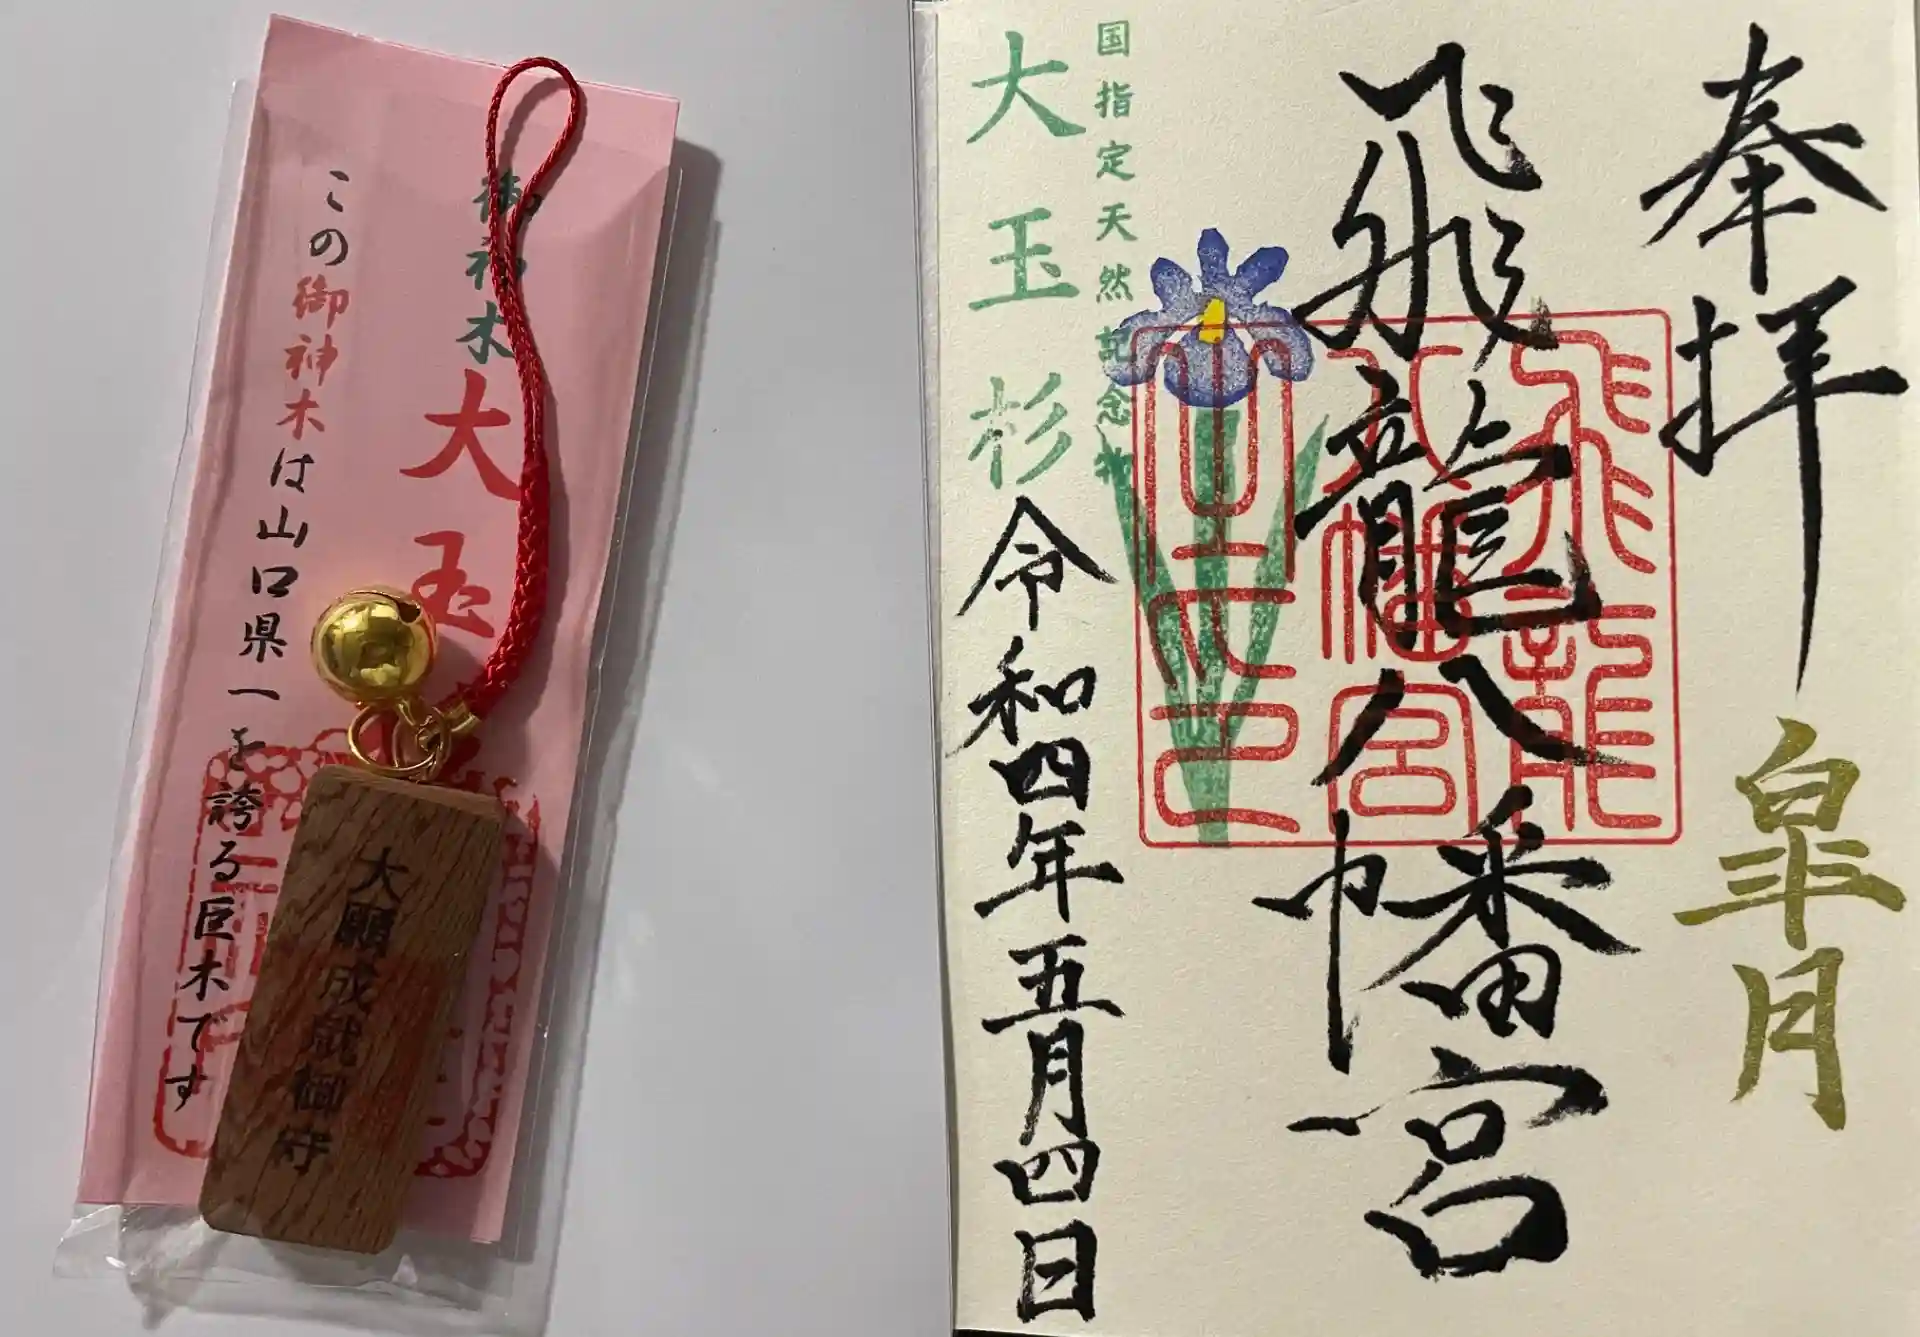 御神木
大玉
この御神木は山口県一を誇る巨木です
大願成就御守
奉拝
皐月
飛龍八幡宮
飛龍
八幡宮
之印
国指定天然記念物
大玉杉
令和四年五月四日